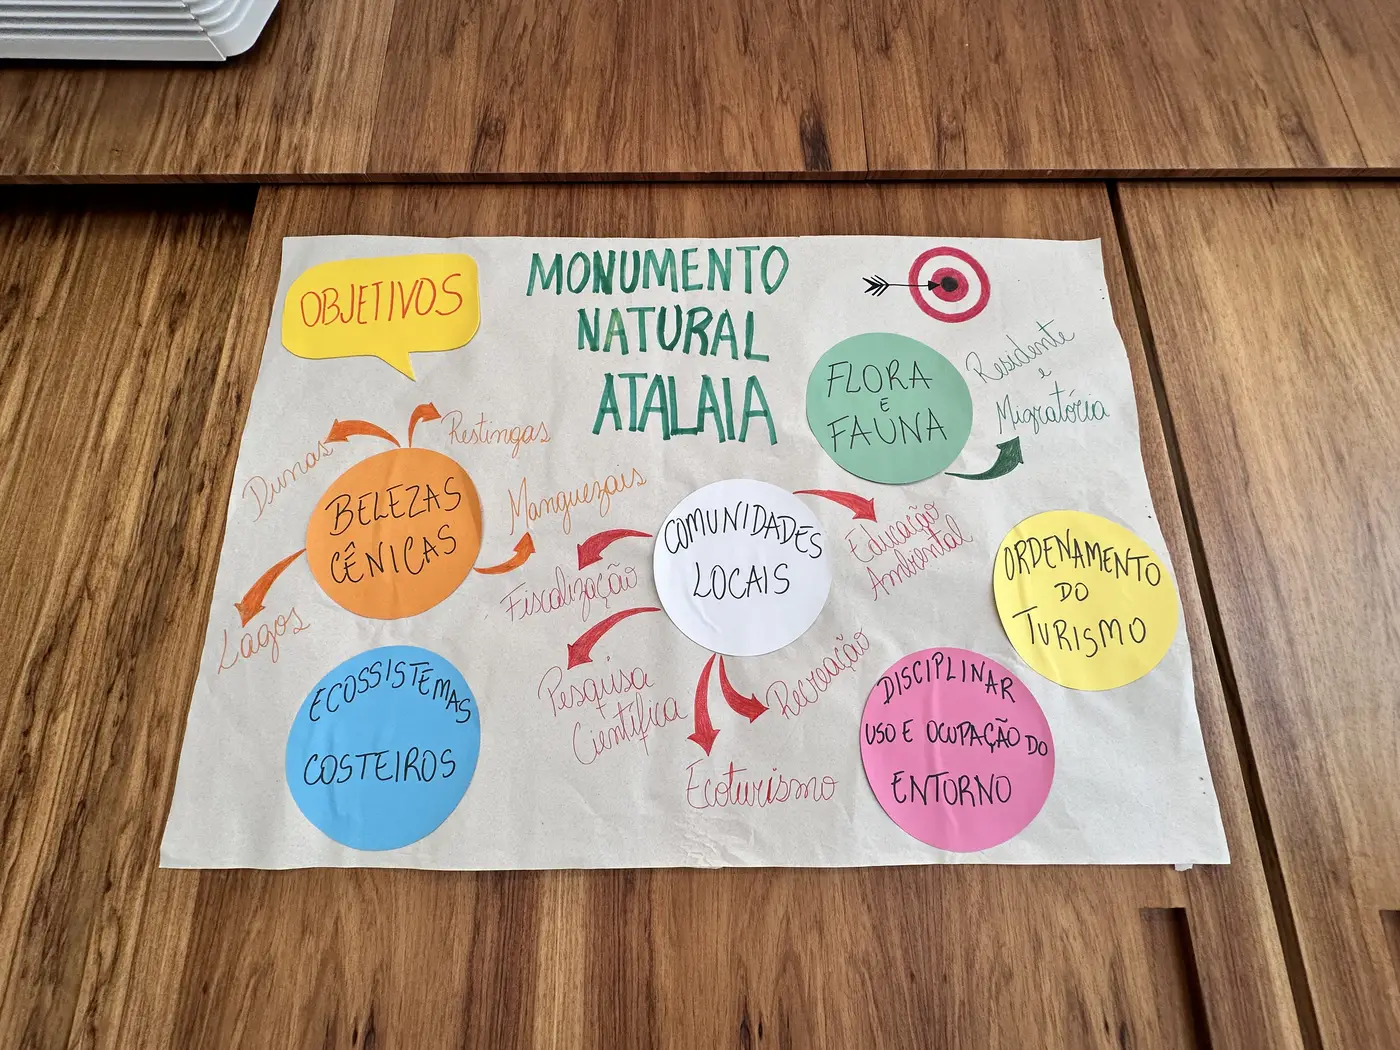 OBJETIVOS
MONUMENTO
NATURAL
ATALAIA
FLORA
E
FAUNA
Residente
e
Migratória
Dunas
Restingas
BELEZAS
CÊNICAS
Manguezais
Lagos
COMUNIDADES
LOCAIS
Fiscalização
Educação
Ambiental
Pesquisa
Científica
Recreação
Ecoturismo
ORDENAMENTO
DO
TURISMO
ECOSSISTEMAS
COSTEIROS
DISCIPLINAR
USO E OCUPAÇÃO DO
ENTORNO